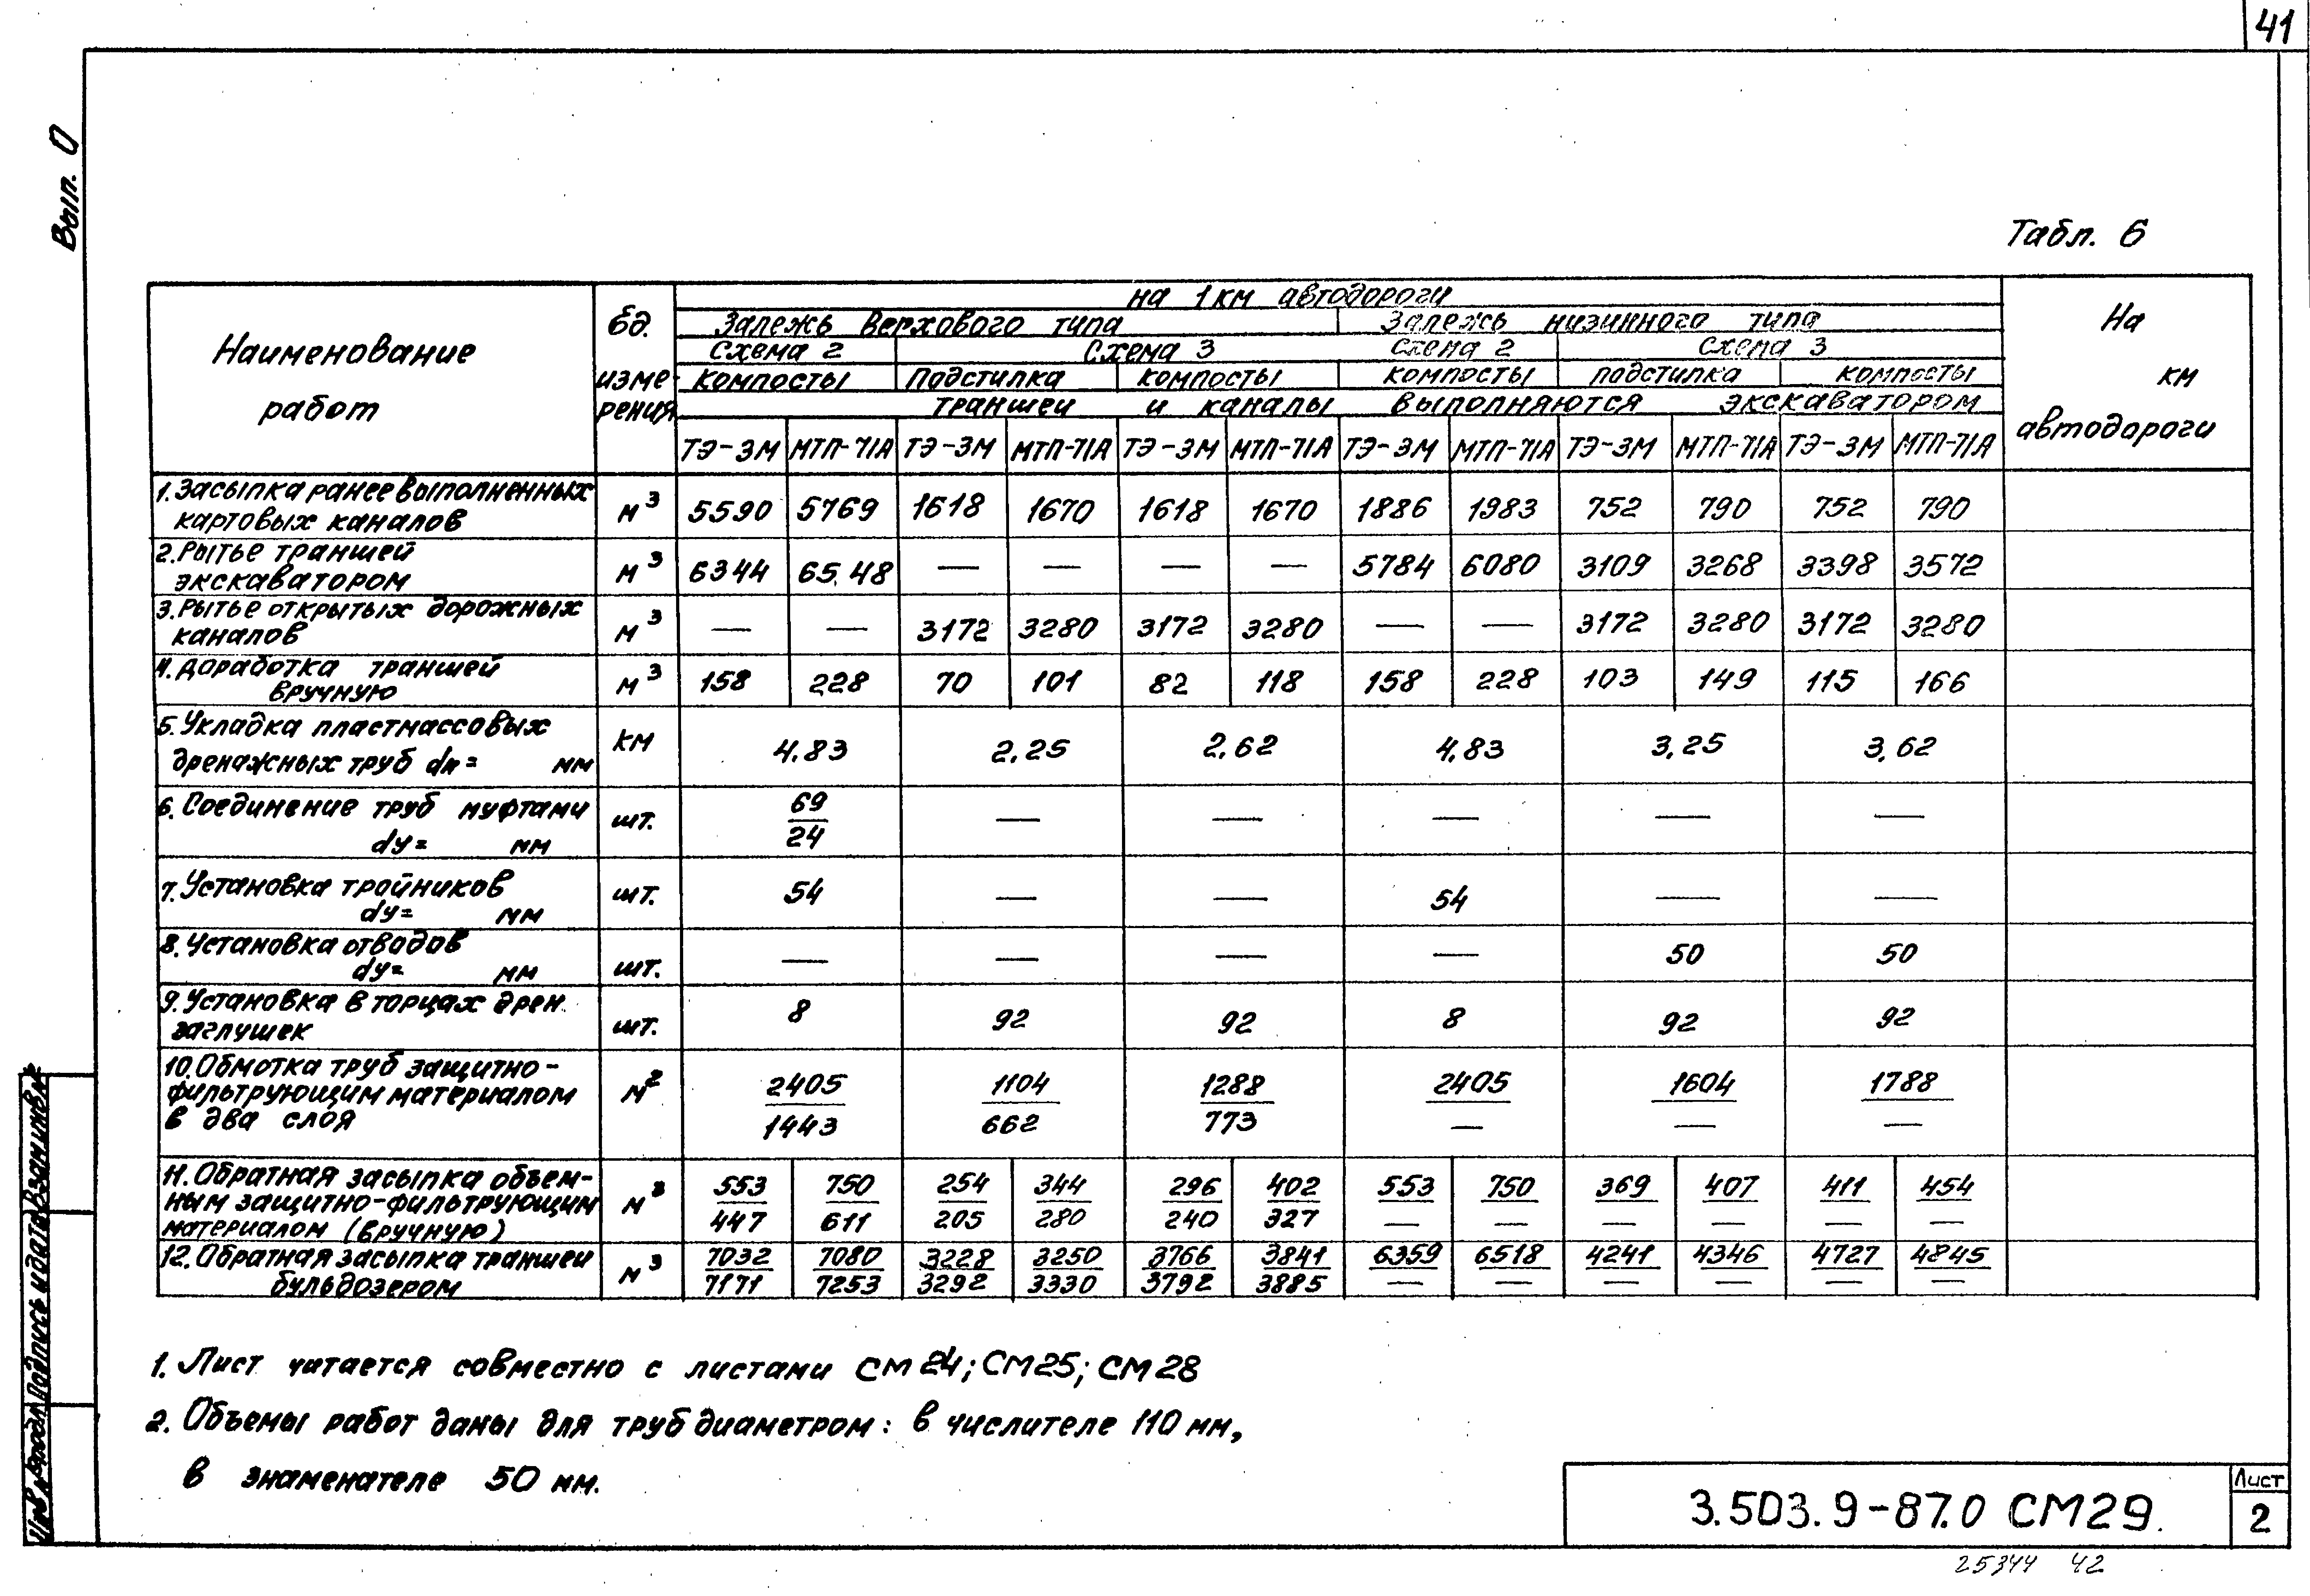 41
Вып. 0
Табл. 6
Наименование работ | Ед. измерения | на 1 км автодороги | На км автодороги
Залежь верхового типа | Залежь низинного типа
Схема 2 | Схема 3 | Схема 2 | Схема 3
Компосты | Подстилка | Компосты | Компосты | Подстилка | Компосты
Траншеи и каналы выполняются экскаватором
ТЭ-3М | МТП-71А | ТЭ-3М | МТП-71А | ТЭ-3М | МТП-71А | ТЭ-3М | МТП-71А | ТЭ-3М | МТП-71А | ТЭ-3М | МТП-71А
1. Засыпка ранее выполненных картовых каналов | м³ | 5590 | 5769 | 1618 | 1670 | 1618 | 1670 | 1886 | 1983 | 752 | 790 | 752 | 790
2. Рытье траншей экскаватором | м³ | 6344 | 65.48 | — | — | — | — | 5784 | 6080 | 3109 | 3268 | 3398 | 3572
3. Рытье открытых дорожных каналов | м³ | — | — | 3172 | 3280 | 3172 | 3280 | — | — | 3172 | 3280 | 3172 | 3280
4. Доработка траншей вручную | м³ | 158 | 228 | 70 | 101 | 82 | 118 | 158 | 228 | 103 | 149 | 115 | 166
5. Укладка пластмассовых дренажных труб dн= мм | км | 4.83 | 2.25 | 2.62 | 4.83 | 3.25 | 3.62
6. Соединение труб муфтами dу= мм | шт. | 69/24 | — | — | — | — | —
7. Установка тройников dу= мм | шт. | 54 | — | — | 54 | — | —
8. Установка отводов dу= мм | шт. | — | — | — | — | 50 | 50
9. Установка в торцах дрен заглушек | шт. | 8 | 92 | 92 | 8 | 92 | 92
10. Обмотка труб защитно-фильтрующим материалом в два слоя | м² | 2405/1443 | 1104/662 | 1288/773 | 2405/— | 1604/— | 1788/—
11. Обратная засыпка объемным защитно-фильтрующим материалом (вручную) | м³ | 553/447 | 750/611 | 254/205 | 344/280 | 296/240 | 402/327 | 553/— | 750/— | 369/— | 407/— | 411/— | 454/—
12. Обратная засыпка траншеи бульдозером | м³ | 7032/7171 | 7080/7253 | 3228/3292 | 3250/3330 | 3766/3792 | 3841/3885 | 6359/— | 6518/— | 4241/— | 4346/— | 4727/— | 4845/—
1. Лист читается совместно с листами СМ24; СМ25; СМ28
2. Объемы работ даны для труб диаметром: в числителе 110 мм,
в знаменателе 50 мм.
3.503.9-87.0 СМ29.
Лист
2
25344 42
Инв. № подл. Подпись и дата Взам. инв. №